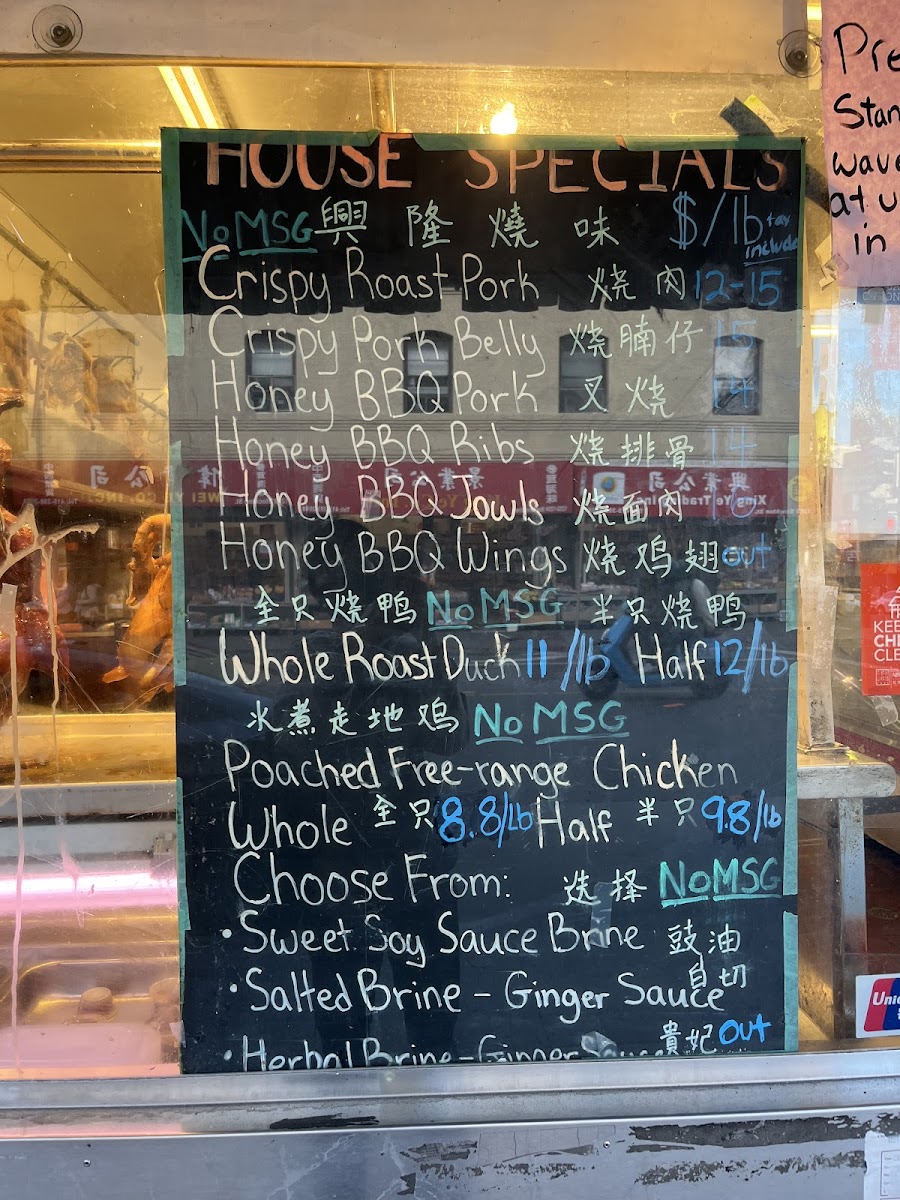 HOUSE SPECIALS
No MSG 興隆燒味 $/lb tax include
Crispy Roast Pork 烧肉 12-15
Crispy Pork Belly 烧腩仔 15
Honey BBQ Pork 叉烧 14
Honey BBQ Ribs 烧排骨 14
Honey BBQ Jowls 烧面肉
Honey BBQ Wings 烧鸡翅 out
全只烧鸭 No MSG 半只烧鸭
Whole Roast Duck 11/lb Half 12/lb
水煮走地鸡 No MSG
Poached Free-range Chicken
Whole 全只 8.8/Lb Half 半只 9.8/lb
Choose From: 选择 No MSG
·Sweet Soy Sauce Brine 豉油
·Salted Brine - Ginger Sauce 白切
·Herbal Brine - Ginger Sauce 貴妃 Out
Pre
Stan
wave
at u
in
KEE
CHI
CLE
Unio